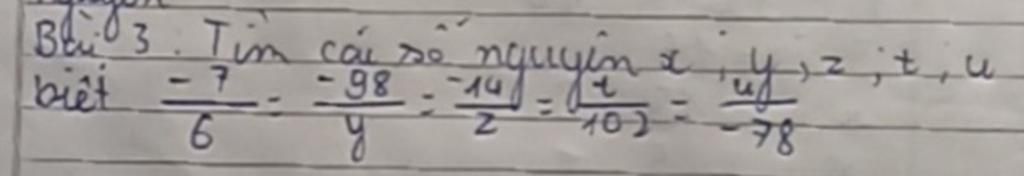 Bài 3. Tìm các số nguyên x, y, z, t, u
biết -7/6 = -98/y = -14/z = t/102 = u/-78